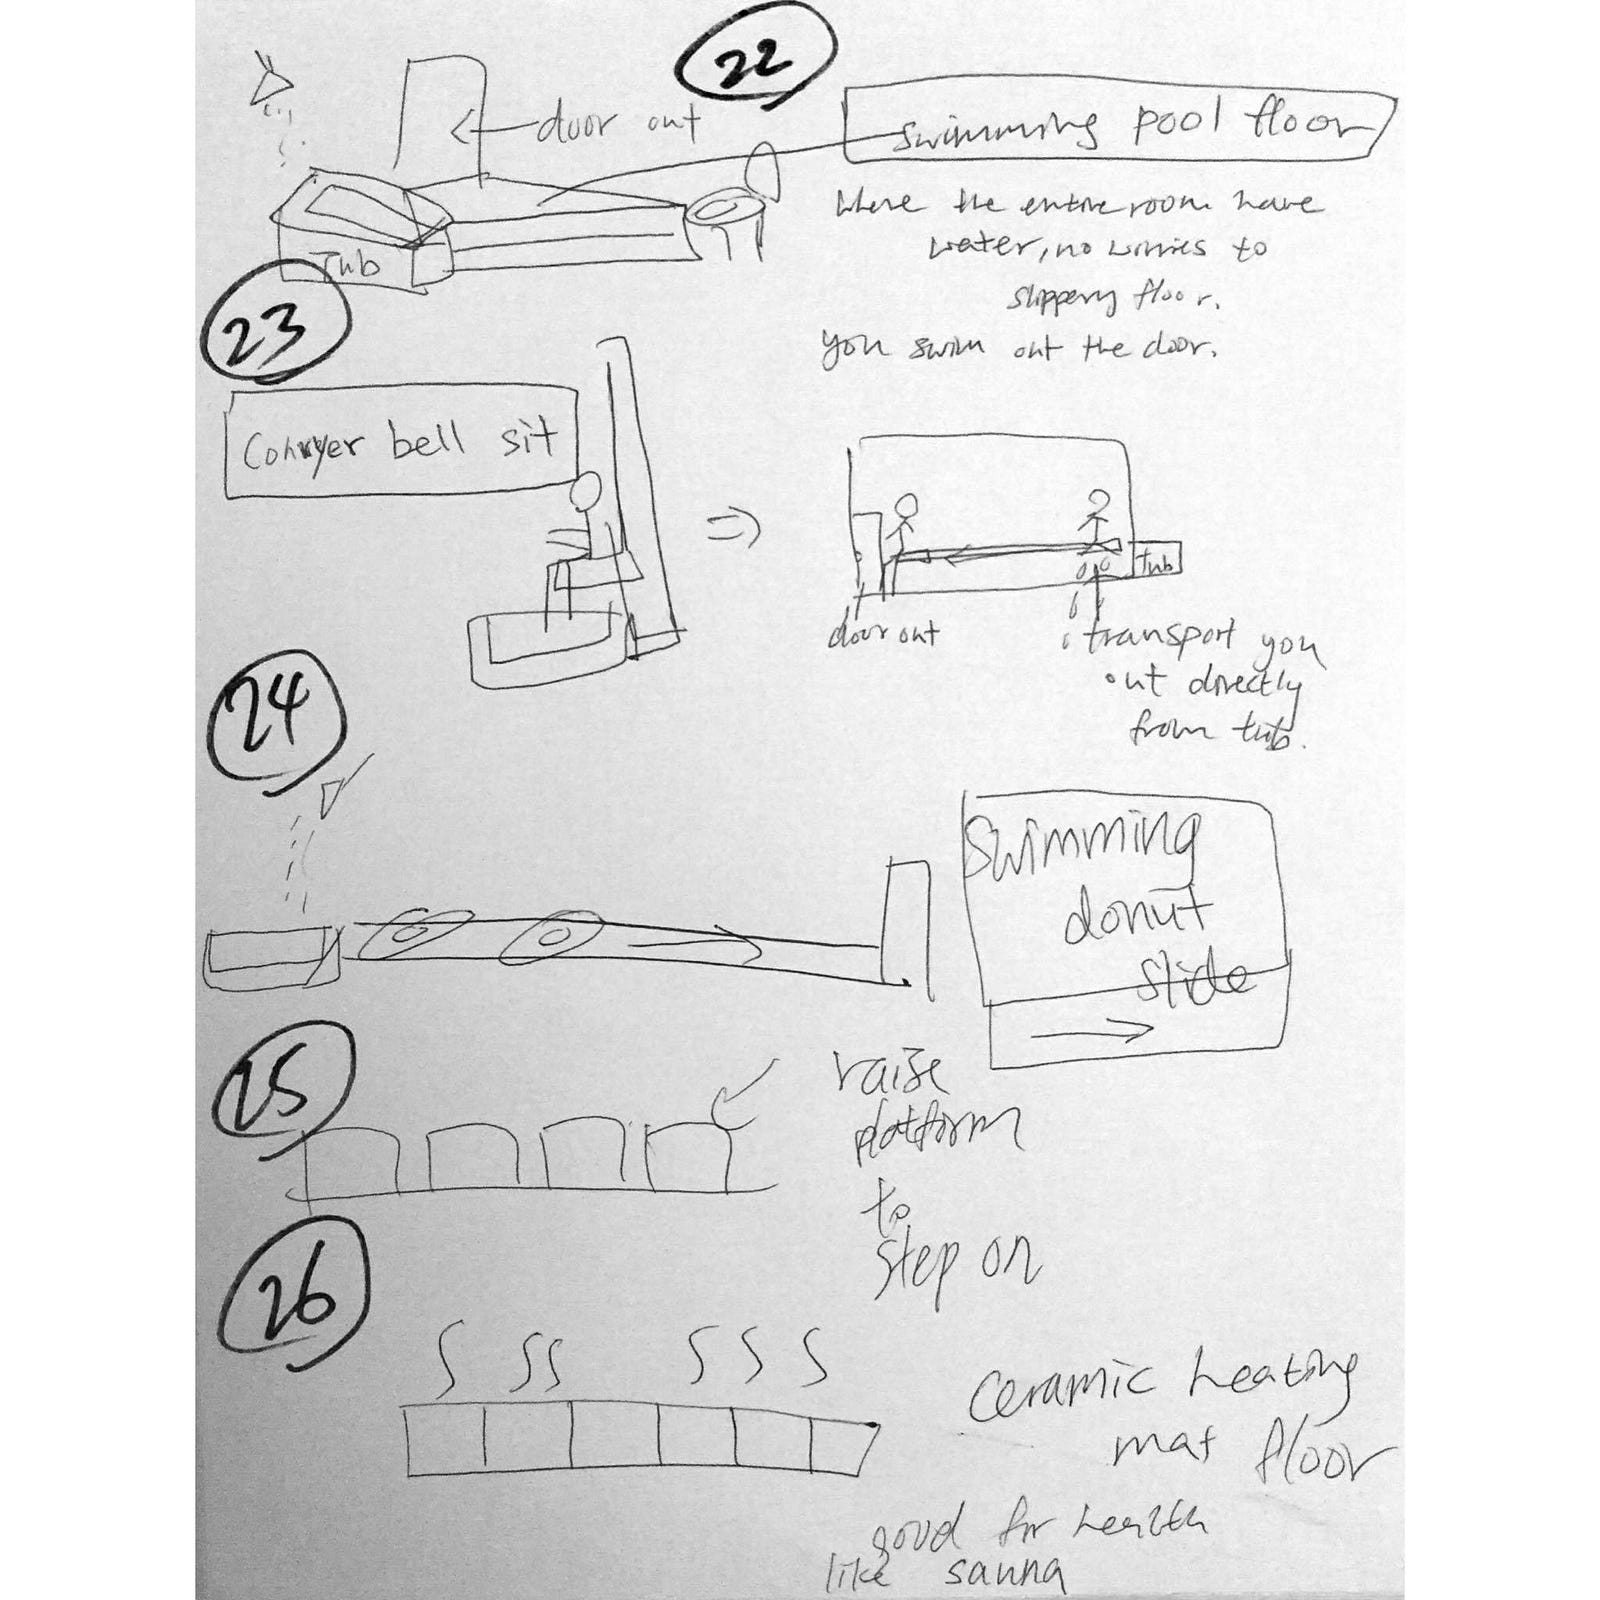 22
door out
swimming pool floor
where the entire room have
water, no worries to
slippery floor.
you swim out the door.
Tub
23
Conveyer bell sit
Tub
door out
transport you
out directly
from tub.
24
Swimming
donut
slide
25
raise
platform
to
step on
26
Ceramic heating
mat floor
good for health
like sauna